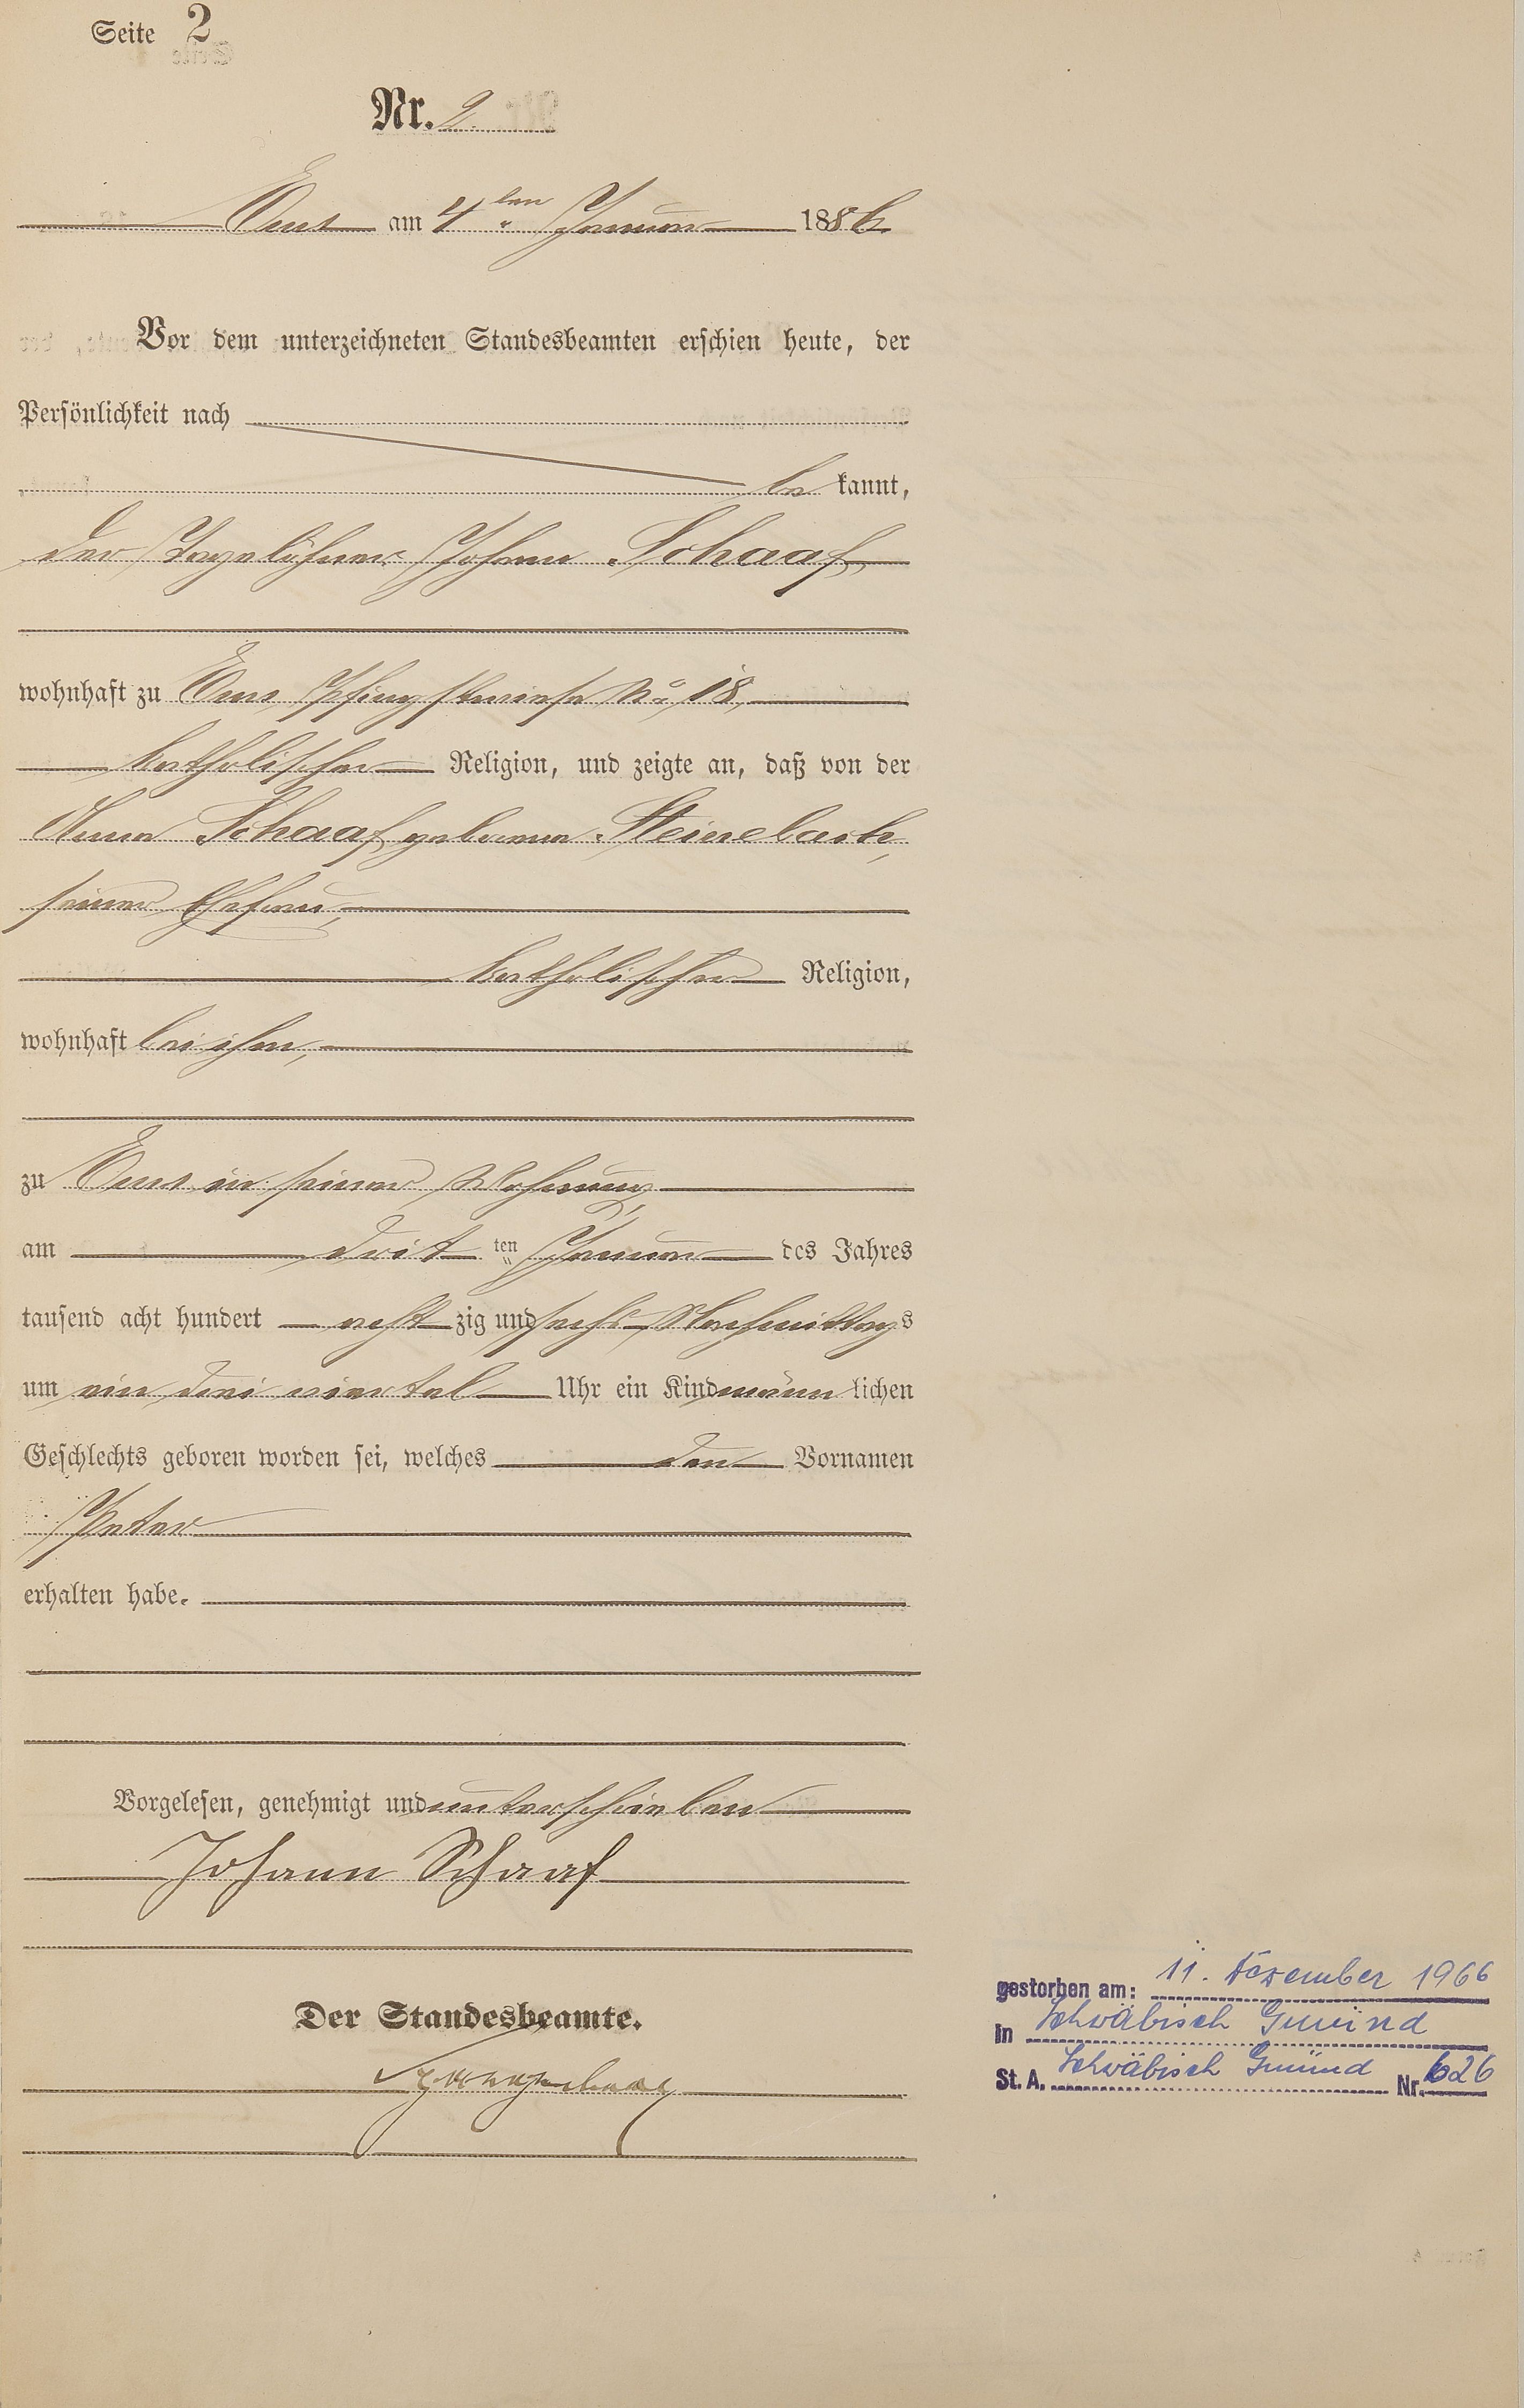 Seite 2
Nr. 2.
Ems am 4ten Januar 1886
Vor dem unterzeichneten Standesbeamten erschien heute, der
Persönlichkeit nach
be kannt,
der Tagelöhner Johann Schaaf,
wohnhaft zu Ems, Pfingstwiese No. 18,
katholischer Religion, und zeigte an, daß von der
Anna Schaaf geborene Steinebach,
seiner Ehefrau,
katholischer Religion,
wohnhaft bei ihm,
zu Ems in seiner Wohnung,
am drit ten Januar des Jahres
tausend acht hundert acht zig und sechs Nachmittags
um ein drei viertel Uhr ein Kind männ lichen
Geschlechts geboren worden sei, welches den Vornamen
Peter
erhalten habe.
Vorgelesen, genehmigt und unterschrieben
Johann Schaaf
Der Standesbeamte.
gestorben am: 11. Dezember 1966
in Schwäbisch Gmünd
St. A. Schwäbisch Gmünd Nr. 626